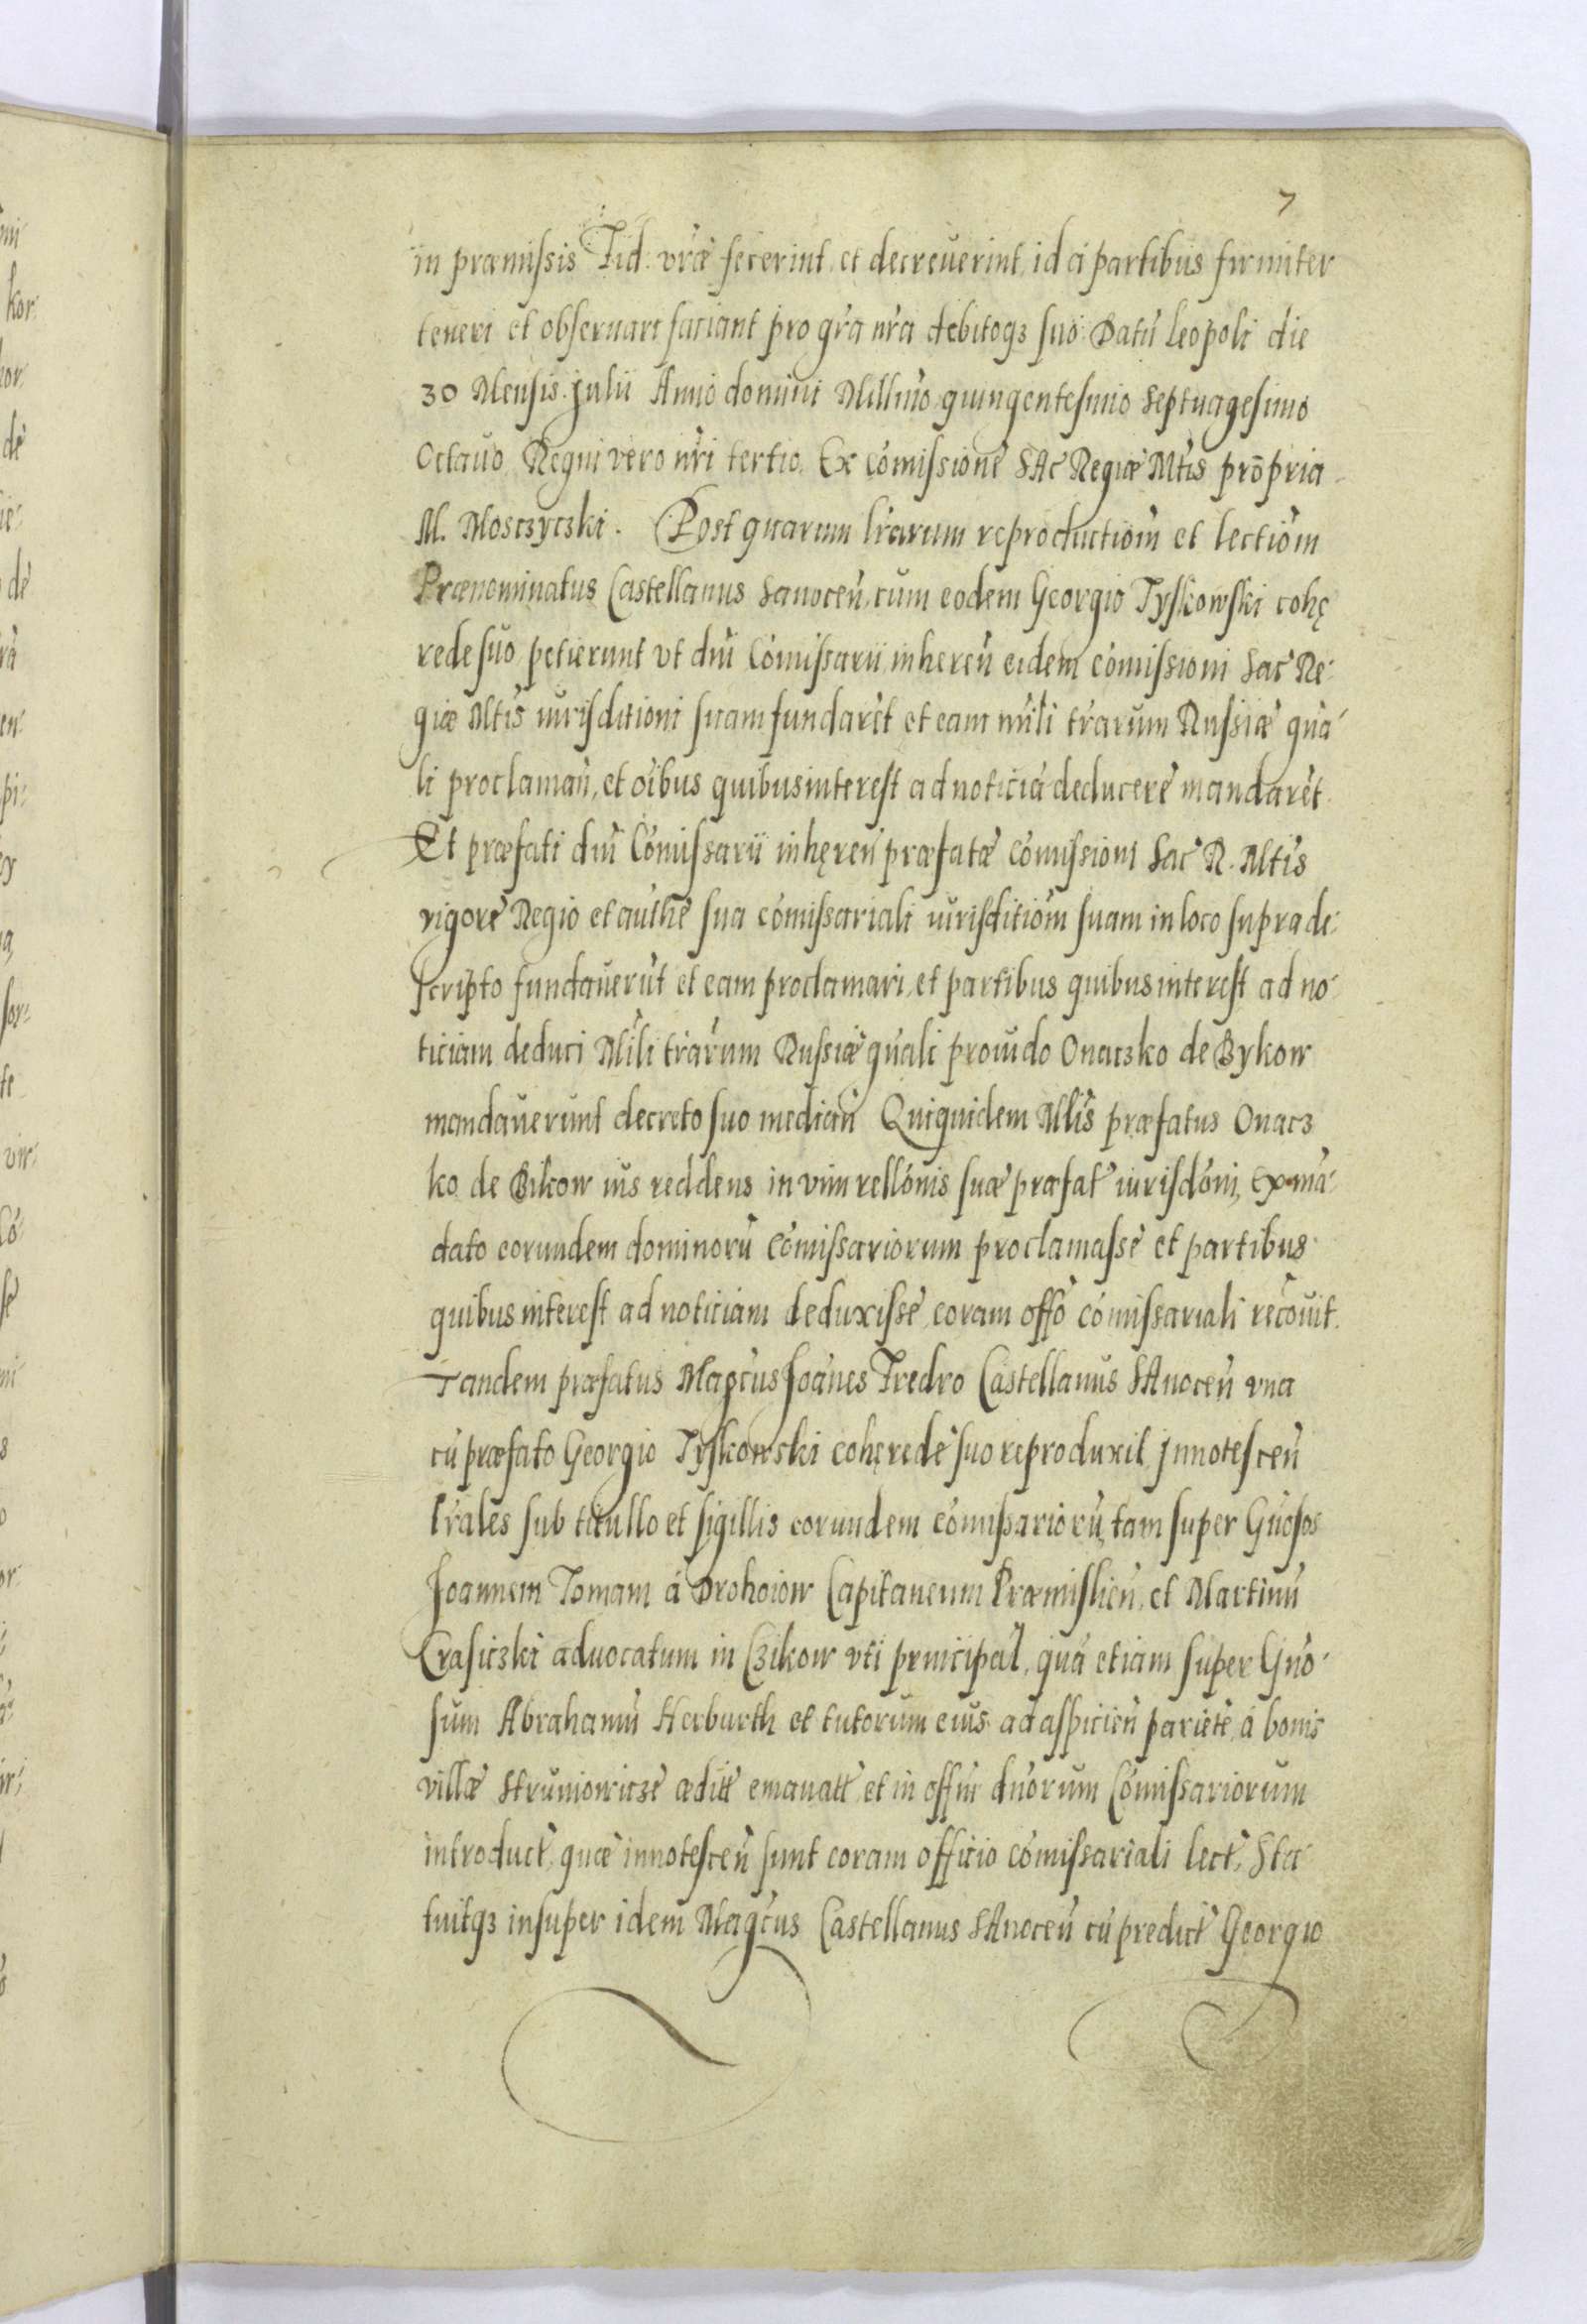 7
in præmissis Fid: vræ fecerint, et decreverint, id a partibus firmiter
teneri et observari faciant pro gra nra debitoqz suo. Datũ Leopoli die
30 Mensis Julii Anno domini Millmo quingentesimo Septuagesimo
Octavo, Regni vero nri tertio. Ex Comissione SAc Regiæ Mtis propria
M. Mosczyczki. Post quarum lrarum reproductiom et lectiom
Prænominatus Castellanus Sanoceñ, cum eodem Georgio Tyskowski cohę
rede suo petierunt vt dni Comissarii, inhereñ eidem comissioni Sac Re:
giæ Mtis iurisditioni suam fundaret et eam mili trarum Russiæ gna
li proclamañ, et oibus quibus interest ad noticiã deducere mandarẽt.
Et præfati dni Comissarii inhęreñ præfatæ comissioni Sac R. Mtis
vigore Regio et authe sua comissariali iurisditiom suam in loco suprade:
scripto fundaverũt et eam proclamari, et partibus quibus interest ad no:
ticiam deduci Mili trarum Russiæ gnali provido Onaczko de Bykow
mandaverunt decreto suo mediañ Quiquidem Mlis præfatus Onacz
ko de Bikow ius reddens in vim rellonis suæ præfat iurisdoni, Ex mã:
dato eorundem dominorũ Comissariorum proclamasse et partibus
quibus interest ad noticiam deduxisse, coram offo comissariali recovit.
Tandem præfatus Magcus Joanes Fredro Castellanus SAnoceñ vna
cũ præfato Georgio Tyskowski cohęrede suo reproduxit Innotesceñ
lrales sub titullo et sigillis eorundem comissariorũ, tam super Gñosos
Joannem Tomam á Drohoiow Capitaneum Præmislieñ, et Martinũ
Crasiczki advocatum in Czikow vti principal, quã etiam super Gno:
sum Abrahamũ Herburth et tutorum eius ad aspicieñ pariete, á bonis
villæ Struniowicze æditt emanatt, et in offm dnorum Comissariorum
introduct, quæ innotesceñ sunt coram officio comissariali lect, Sta
tuitqz insuper idem Magcus Castellanus SAnoceñ cũ predict Georgio